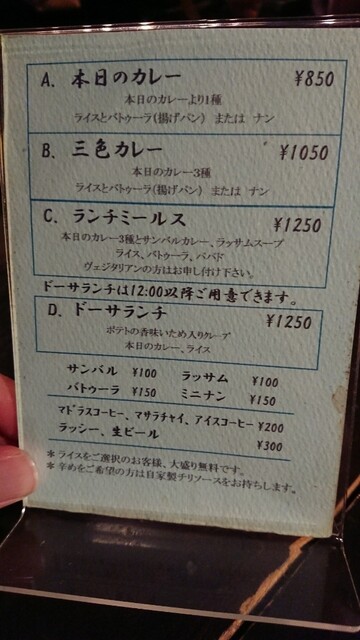 A. 本日のカレー ¥850
本日のカレーより1種
ライスとバトゥーラ(揚げパン) または ナン
B. 三色カレー ¥1050
本日のカレー3種
ライスとバトゥーラ(揚げパン) または ナン
C. ランチミールス ¥1250
本日のカレー3種とサンバルカレー、ラッサムスープ
ライス、バトゥーラ、パパド
ヴェジタリアンの方はお申し付け下さい。
ドーサランチは12:00以降ご用意できます。
D. ドーサランチ ¥1250
ポテトの香味いため入りクレープ
本日のカレー、ライス
サンバル ¥100 ラッサム ¥100
バトゥーラ ¥150 ミニナン ¥150
マドラスコーヒー、マサラチャイ、アイスコーヒー ¥200
ラッシー、生ビール ¥300
*ライスをご選択のお客様、大盛り無料です。
*辛めをご希望の方は自家製チリソースをお持ちします。